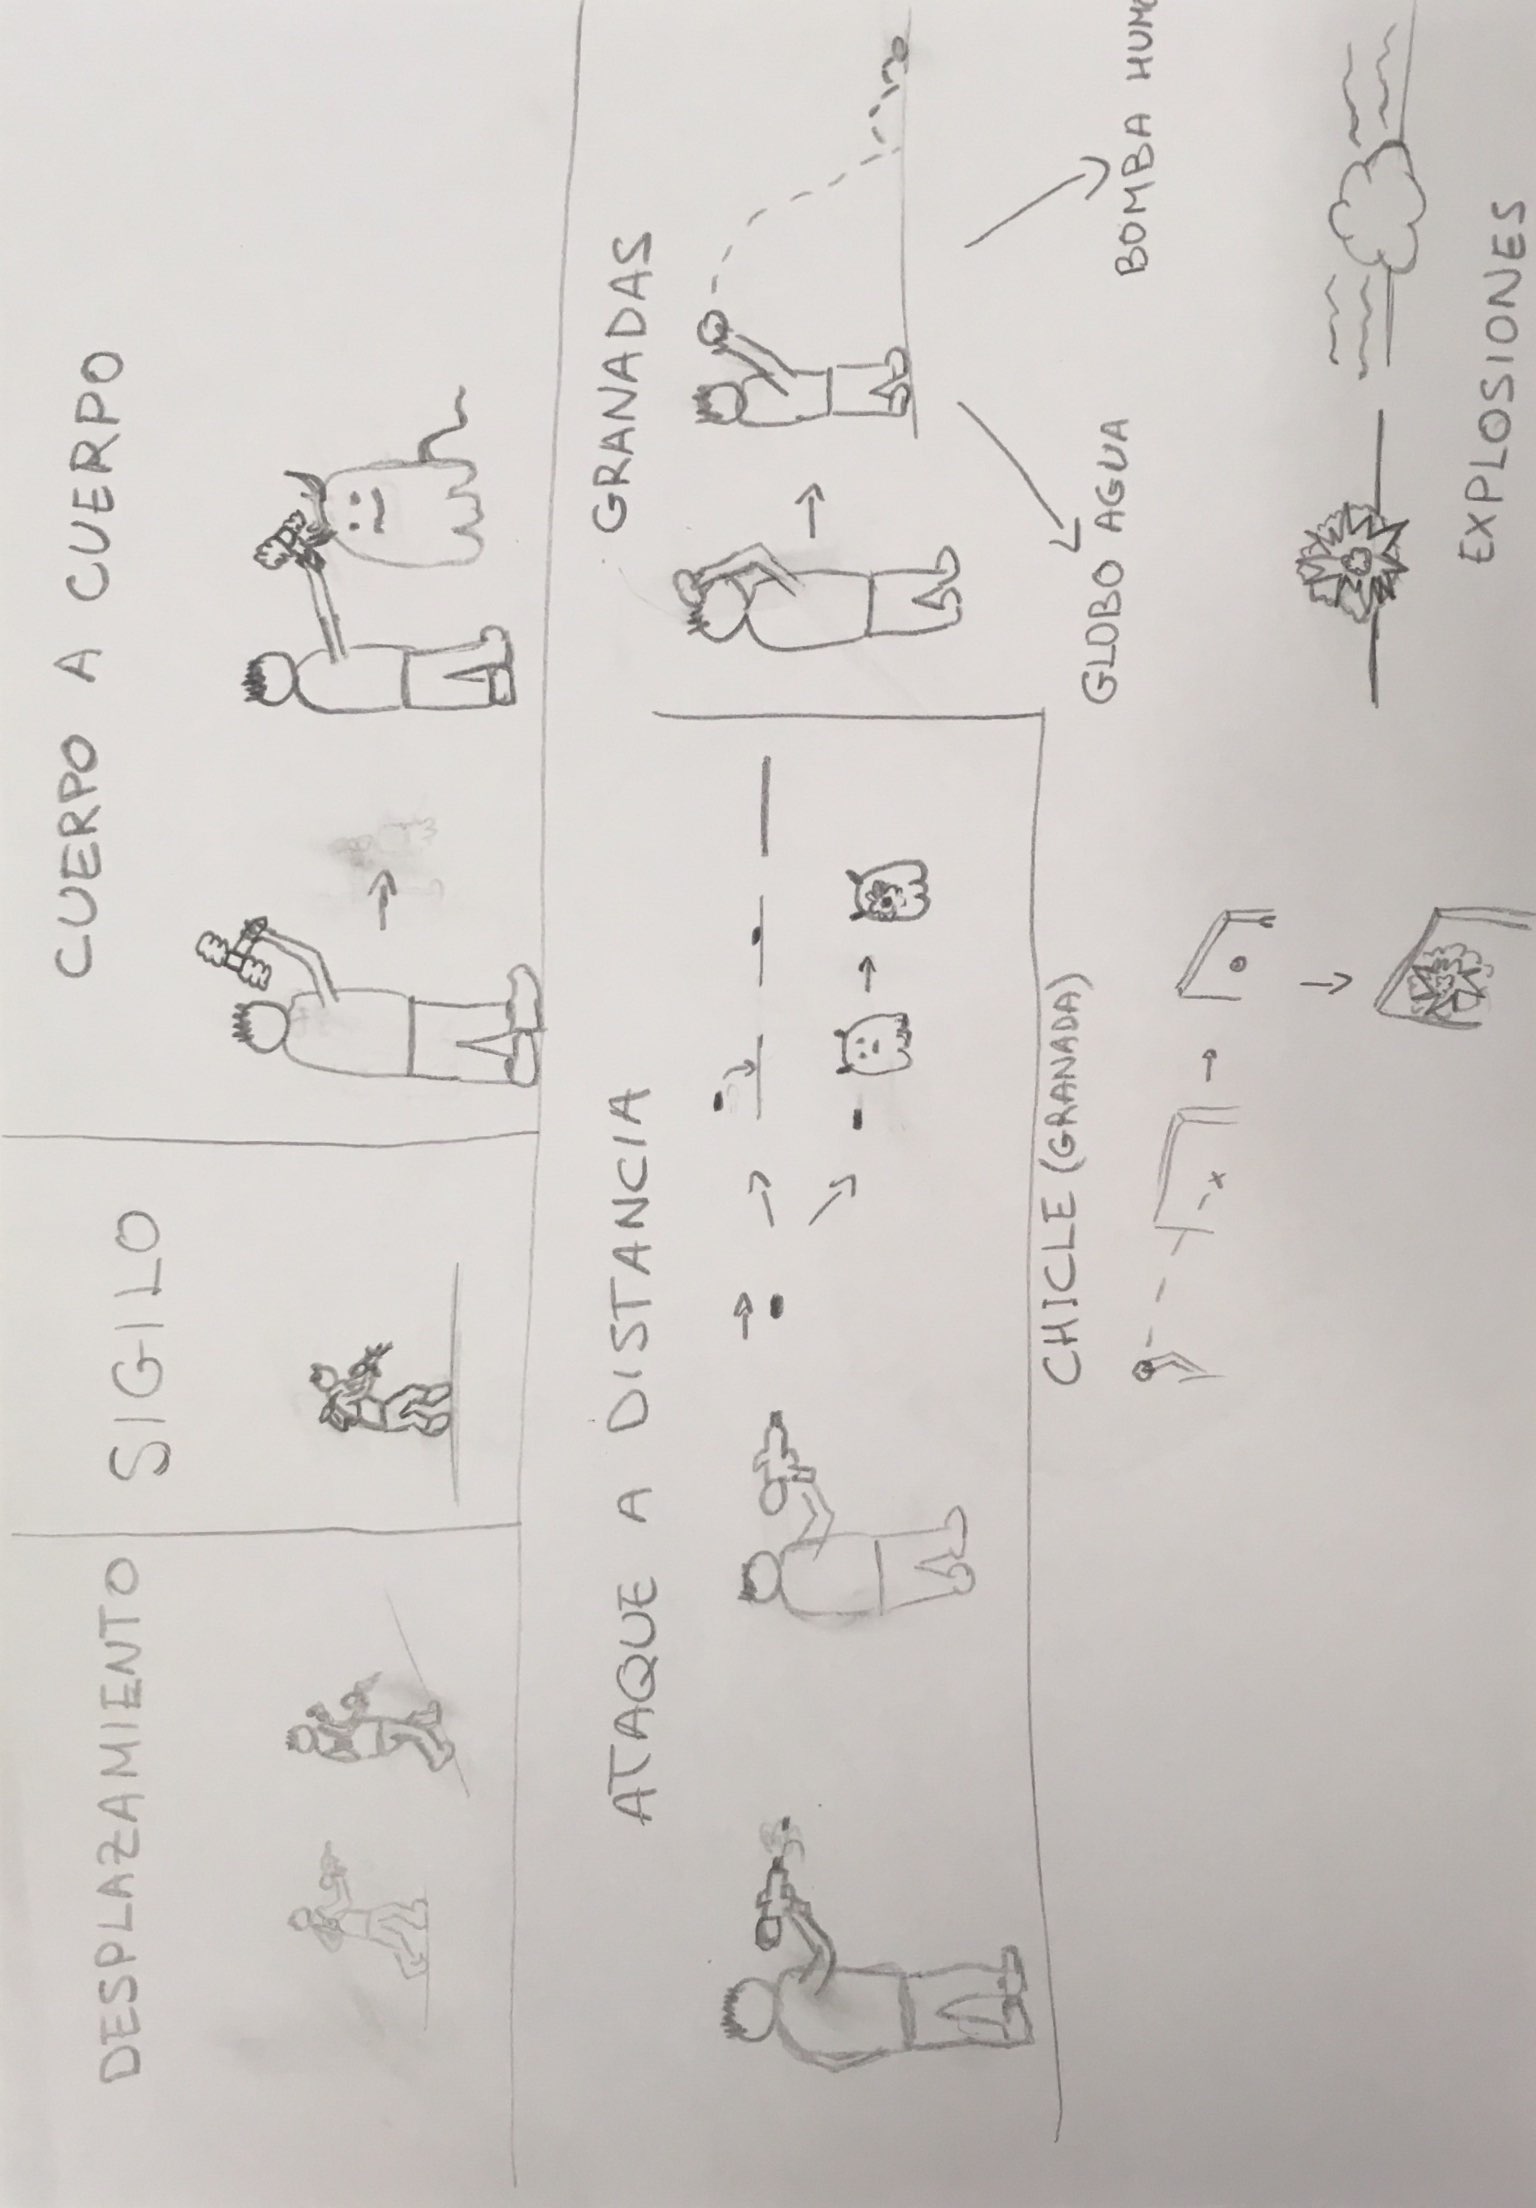 DESPLAZAMIENTO
SIGILO
CUERPO A CUERPO
ATAQUE A DISTANCIA
GRANADAS
GLOBO AGUA
BOMBA
CHICLE (GRANADA)
EXPLOSIONES